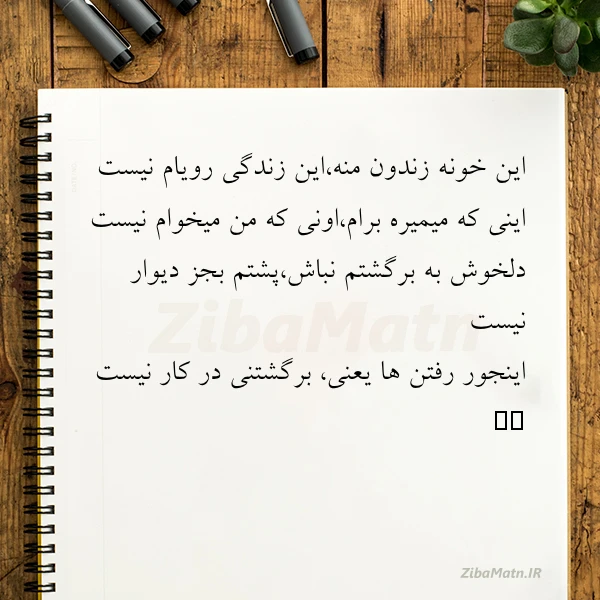 این خونه زندون منه،این زندگی رویام نیست
اینی که میمیره برام،اونی که من میخوام نیست
دلخوش به برگشتم نباش،پشتم بجز دیوار
نیست
اینجور رفتن ها یعنی، برگشتنی در کار نیست
ZibaMatn
ZibaMatn.IR